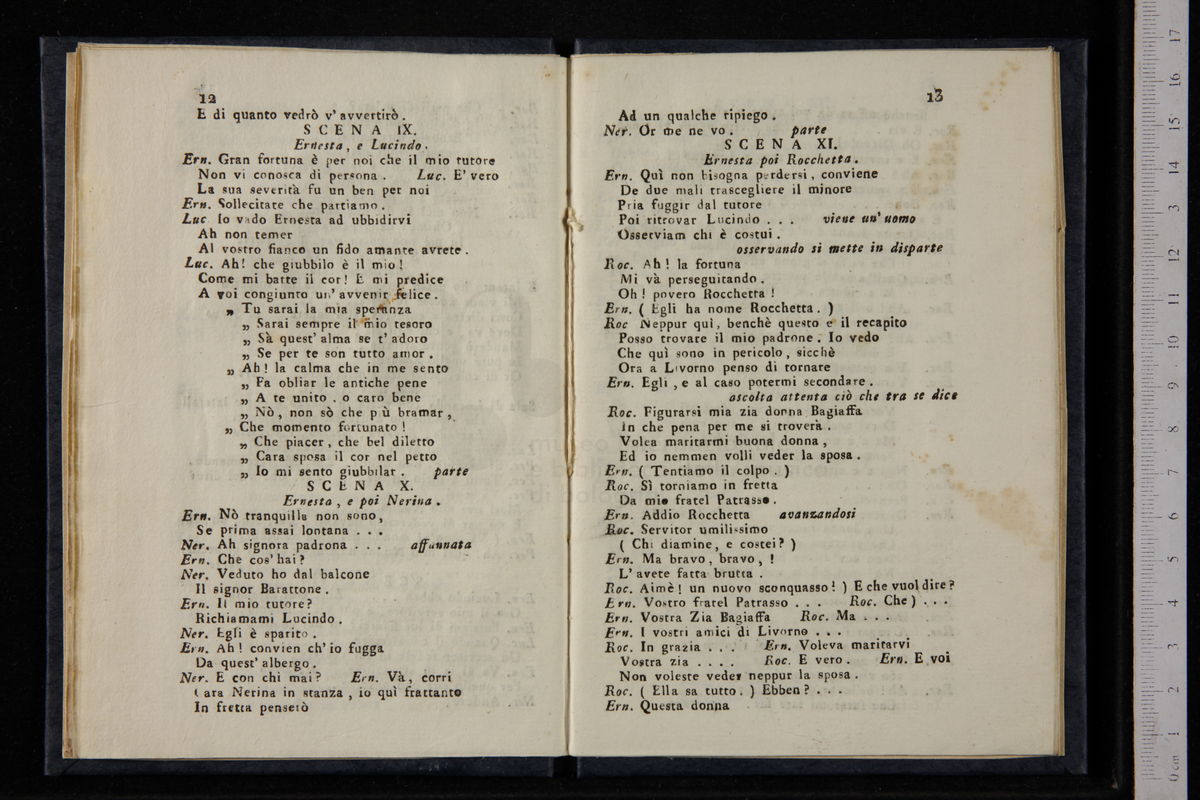 12
E di quanto vedrò v' avvertirò.
SCENA IX.
Ernesta, e Lucindo.
Ern. Gran fortuna è per noi che il mio tutore
Non vi conosca di persona. Luc. E' vero
La sua severità fu un ben per noi
Ern. Sollecitate che partiamo.
Luc Io vado Ernesta ad ubbidirvi
Ah non temer
Al vostro fianco un fido amante avrete.
Luc. Ah! che giubbilo è il mio!
Come mi batte il cor! E mi predice
A voi congiunto un' avvenir felice.
„ Tu sarai la mia speranza
„ Sarai sempre il mio tesoro
„ Sà quest' alma se t' adoro
„ Se per te son tutto amor.
„ Ah! la calma che in me sento
„ Fa obliar le antiche pene
„ A te unito. o caro bene
„ Nò, non sò che più bramar,
„ Che momento fortunato!
„ Che piacer, che bel diletto
„ Cara sposa il cor nel petto
„ Io mi sento giubbilar. parte
SCENA X.
Ernesta, e poi Nerina.
Ern. Nò tranquilla non sono,
Se prima assai lontana . . .
Ner. Ah signora padrona . . . affannata
Ern. Che cos' hai?
Ner. Veduto ho dal balcone
Il signor Barattone.
Ern. Il mio tutore?
Richiamami Lucindo.
Ner. Egli è sparito.
Ern. Ah! convien ch' io fugga
Da quest' albergo.
Ner. E con chi mai? Ern. Và, corri
Cara Nerina in stanza, io quì frattanto
In fretta penserò
13
Ad un qualche ripiego.
Ner. Or me ne vo. parte
SCENA XI.
Ernesta poi Rocchetta.
Ern. Quì non bisogna perdersi, conviene
De due mali trascegliere il minore
Pria fuggir dal tutore
Poi ritrovar Lucindo . . . viene un' uomo
Osserviam chi è costui.
osservando si mette in disparte
Roc. Ah! la fortuna
Mi và perseguitando.
Oh! povero Rocchetta!
Ern. ( Egli ha nome Rocchetta. )
Roc Neppur quì, benchè questo e il recapito
Posso trovare il mio padrone. Io vedo
Che quì sono in pericolo, sicchè
Ora a Livorno penso di tornare
Ern. Egli, e al caso potermi secondare.
ascolta attenta ciò che tra se dice
Roc. Figurarsi mia zia donna Bagiaffa
In che pena per me si troverà.
Volea maritarmi buona donna,
Ed io nemmen volli veder la sposa.
Ern. ( Tentiamo il colpo. )
Roc. Sì torniamo in fretta
Da mio fratel Patrasso.
Ern. Addio Rocchetta avanzandosi
Roc. Servitor umilissimo
( Chi diamine, e costei? )
Ern. Ma bravo, bravo, !
L' avete fatta brutta.
Roc. Aimè! un nuovo sconquasso! ) E che vuol dire?
Ern. Vostro fratel Patrasso . . . Roc. Che) . . .
Ern. Vostra Zia Bagiaffa Roc. Ma . . .
Ern. I vostri amici di Livorno . . .
Roc. In grazia . . . Ern. Voleva maritarvi
Vostra zia . . . . Roc. E vero. Ern. E voi
Non voleste veder neppur la sposa.
Roc. ( Ella sa tutto. ) Ebben? . . .
Ern. Questa donna